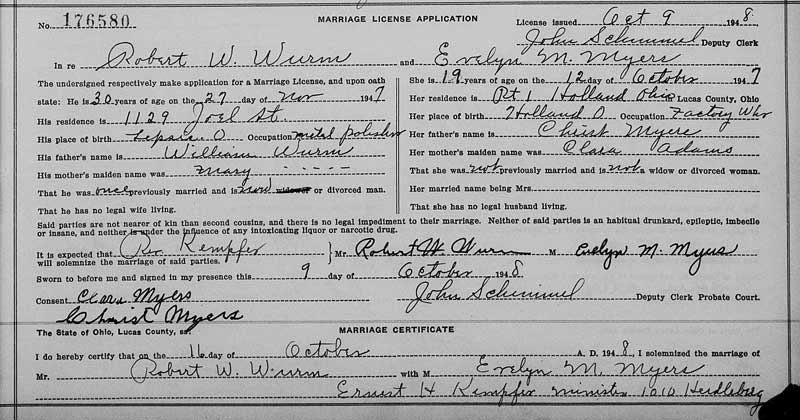 No. 176580 MARRIAGE LICENSE APPLICATION License issued Oct 9 1948.
John Schimmel Deputy Clerk
In re Robert W. Wurm and Evelyn M. Myers
The undersigned respectively make application for a Marriage License, and upon oath
state: He is 30 years of age on the 27 day of Nov 1947
His residence is 1129 Joel St.
His place of birth O Occupation metal polisher
His father's name is William Wurm
His mother's maiden name was Mary - - - - -
That he was once previously married and is now widower or divorced man.
That he has no legal wife living.
She is 19 years of age on the 12 day of October 1947
Her residence is Rt 1 Holland Ohio Lucas County, Ohio
Her place of birth Holland O Occupation Factory Wkr
Her father's name is Christ Myers
Her mother's maiden name was Clara Adams
That she was not previously married and is not a widow or divorced woman.
Her married name being Mrs.
That she has no legal husband living.
Said parties are not nearer of kin than second cousins, and there is no legal impediment to their marriage. Neither of said parties is an habitual drunkard, epileptic, imbecile
or insane, and neither is under the influence of any intoxicating liquor or narcotic drug.
It is expected that Rev Kempfer Mr. Robert W. Wurm M Evelyn M. Myers
will solemnize the marriage of said parties.
Sworn to before me and signed in my presence this 9 day of October 1948
Consent Clara Myers John Schimmel Deputy Clerk Probate Court.
Christ Myers
The State of Ohio, Lucas County, ss. MARRIAGE CERTIFICATE
I do hereby certify that on the 16 day of October A. D. 1948, I solemnized the marriage of
Mr. Robert W. Wurm with M Evelyn M. Myers
Ernest H Kempfer minister 1010